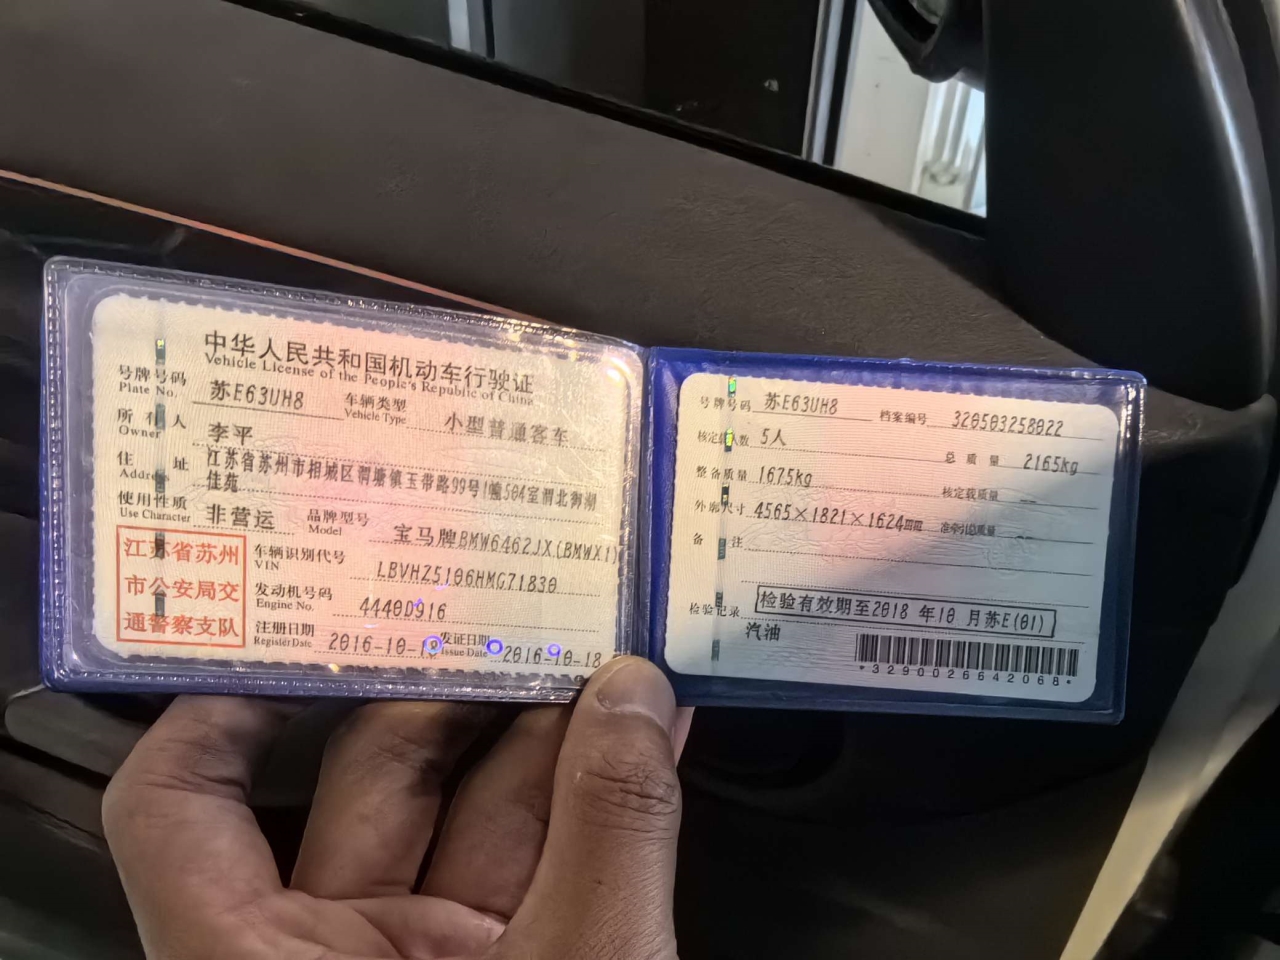 中华人民共和国机动车行驶证
Vehicle License of the People's Republic of China
号牌号码 苏E63UH8 车辆类型 小型普通客车
Plate No. Vehicle Type
所有人 李平
Owner
住址 江苏省苏州市相城区渭塘镇玉带路99号1幢504室渭北御湖
Address 佳苑
使用性质 非营运 品牌型号 宝马牌BMW6462JX(BMWX1)
Use Character Model
江苏省苏州
市公安局交
通警察支队
车辆识别代号 LBVHZ5106HMG71830
VIN
发动机号码 4440D916
Engine No.
注册日期 2016-10- 发证日期 2016-10-18
Register Date Issue Date
号牌号码 苏E63UH8 档案编号 320503258022
核定载人数 5人 总质量 2165kg
整备质量 1675kg 核定载质量 --
外廓尺寸 4565×1821×1624mm 准牵引总质量 --
备注
检验记录 检验有效期至2018 年10 月苏E(01)
汽油
*3290026642068*